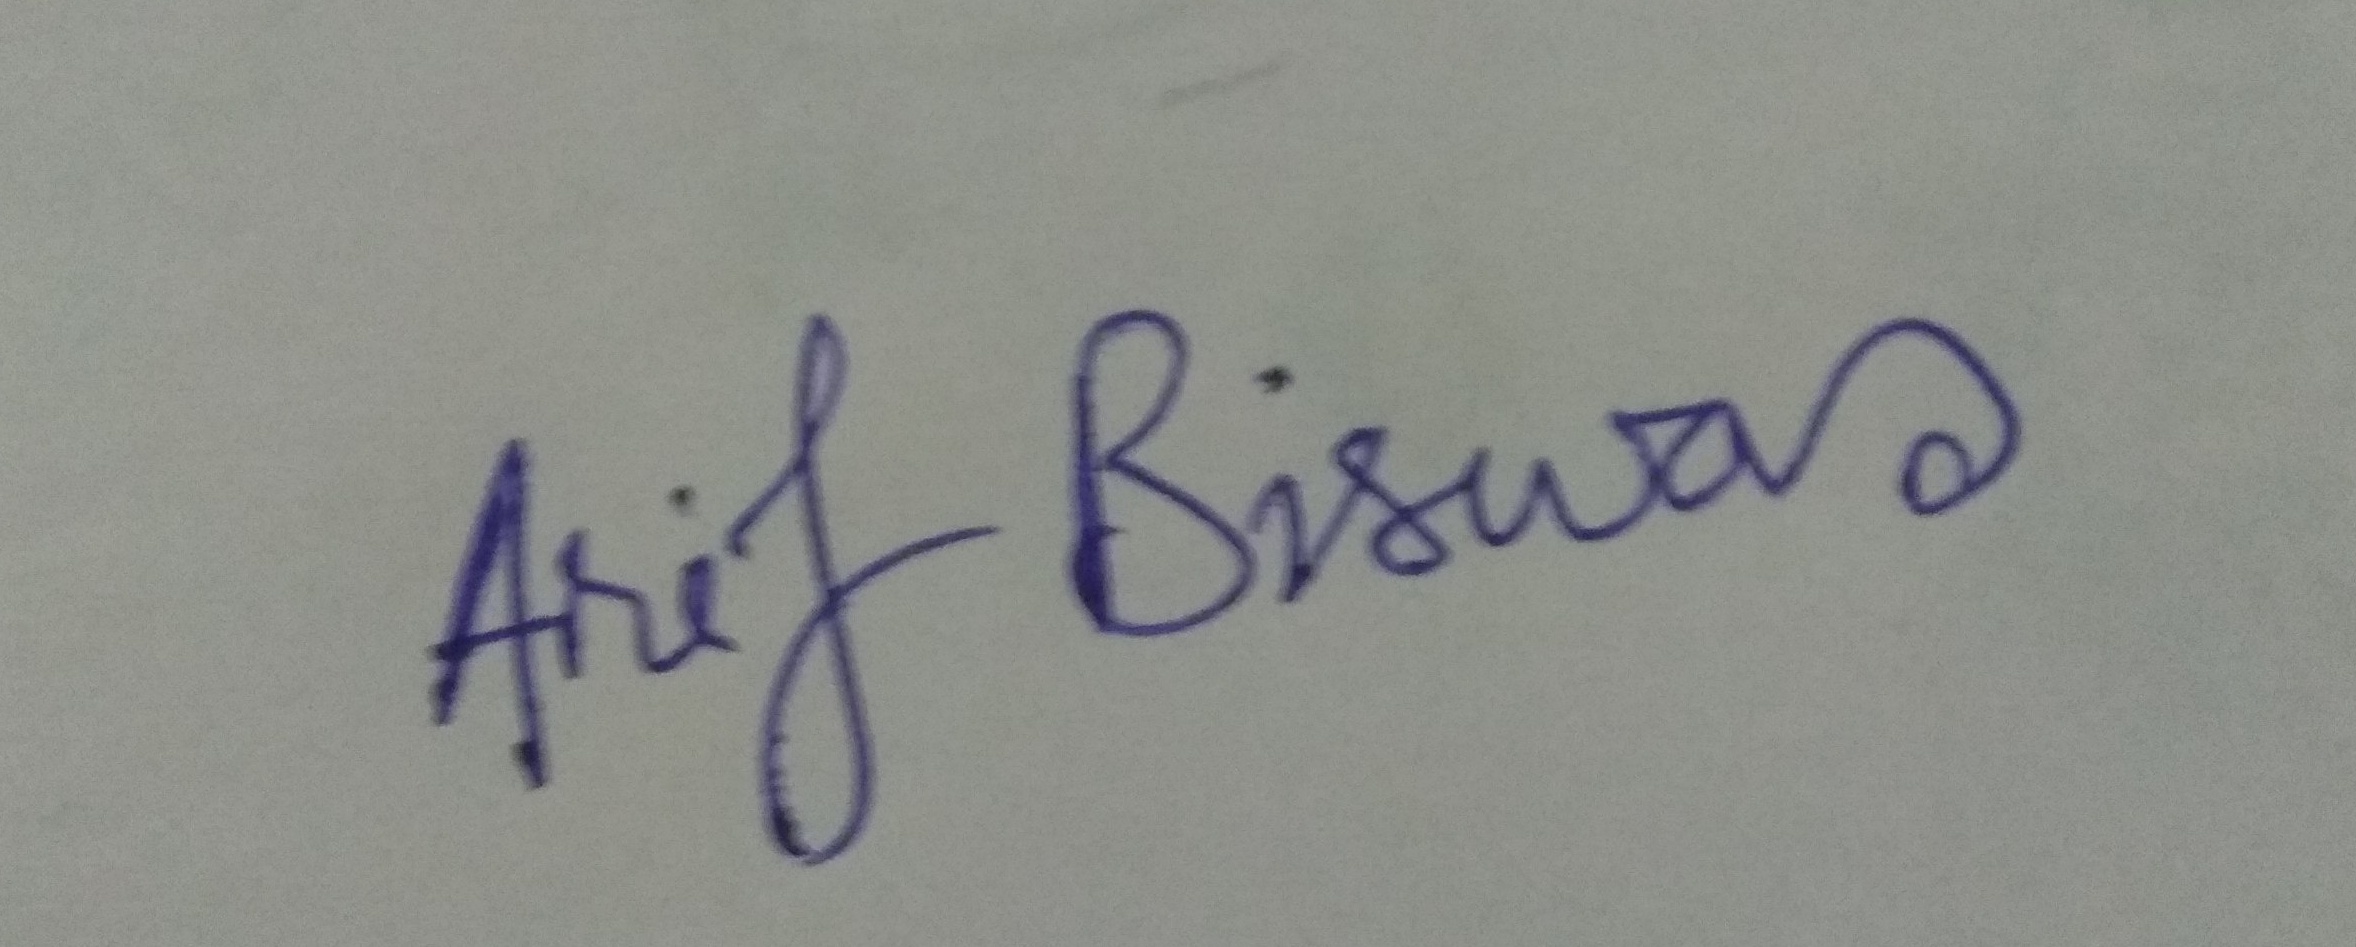 Arif Biswas